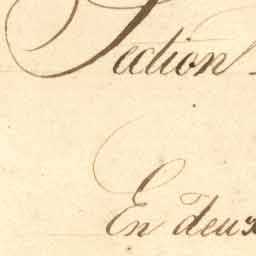 Section
En deux